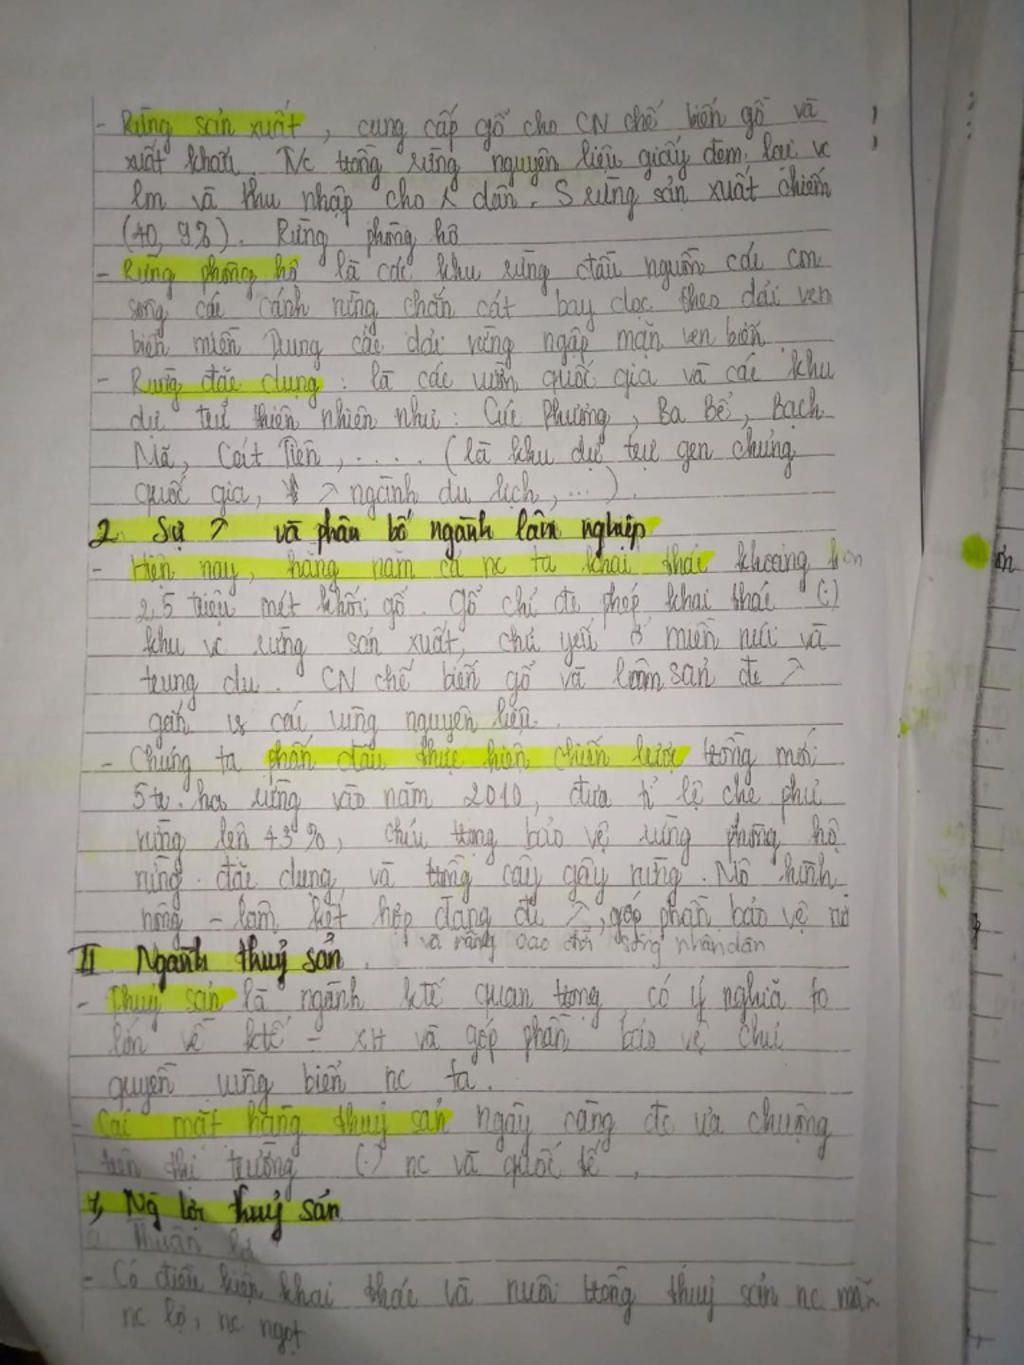 - Rừng sản xuất, cung cấp gỗ cho CN chế biến gỗ và
xuất khẩu. Vc trồng rừng nguyên liệu giấy đem lại vc
lm và thu nhập cho dân. S rừng sản xuất chiếm
(40,9%). Rừng phòng hộ
- Rừng phòng hộ là các khu rừng đầu nguồn các con
sông các cánh rừng chắn cát bay dọc theo dải ven
biển miền Trung các dải rừng ngập mặn ven biển
- Rừng đặc dụng : là các vườn quốc gia và các khu
dự trữ thiên nhiên như : Cúc Phương, Ba Bể, Bạch
Mã, Cát Tiên, .... (là khu dự trữ gen chủng
quốc gia, ↗ ngành du lịch, ...).
2. Sự ↗ và phân bố ngành lâm nghiệp
- Hiện nay, hằng năm cả nc ta khai thái khoảng hơn
2,5 triệu mét khối gỗ. Gỗ chỉ đc phép khai thác (:)
khu vc rừng sản xuất, chủ yếu ở miền núi và
trung du. CN chế biến gỗ và lâm sản đc ↗
gắn vs các vùng nguyên liệu.
- Chúng ta phấn đấu thực hiện chiến lược trồng mới
5tr. ha rừng vào năm 2010, đưa tỉ lệ che phủ
rừng lên 43%, chú trọng bảo vệ rừng phòng hộ
rừng đặc dụng và trồng cây gây rừng. Mô hình
nông - lâm kết hợp đang đc ↗, góp phần bảo vệ
và nâng cao đời sống nhân dân
II Ngành thuỷ sản.
- Thuỷ sản là ngành ktế quan trọng, có ý nghĩa to
lớn về ktế - XH và góp phần bảo vệ chủ
quyền vùng biển nc ta.
- Các mặt hàng thuỷ sản ngày càng đc ưa chuộng
trên thị trường (:) nc và quốc tế.
1, Ng lợi thuỷ sản
a. Thuận lợi
- Có điều kiện khai thác và nuôi trồng thuỷ sản nc mặn
nc lợ, nc ngọt